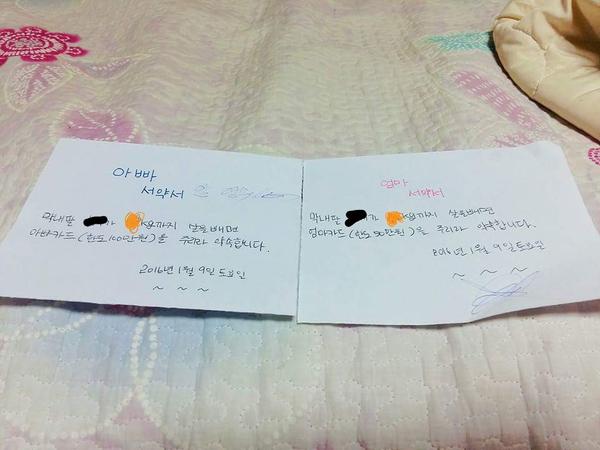 아빠
서약서
막내딸 가 kg까지 살을빼면
아빠카드(한도100만원)을 주리라 약속합니다.
2016년 1월 9일 토요일
~ ~ ~
엄마
서약서
막내딸 가 kg까지 살을빼면
엄마카드(한도50만원)을 주리라 약속합니다.
2016년 1월 9일 토요일
~ ~ ~